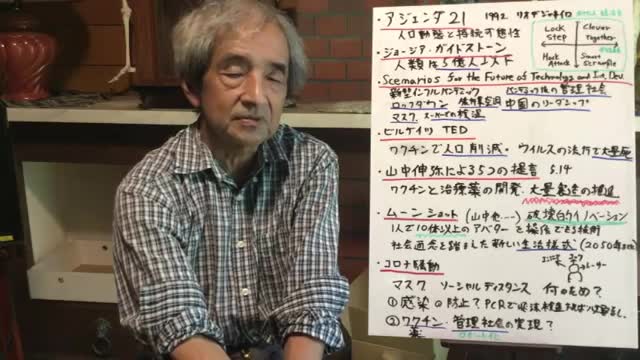 ・アジェンダ21 1992 リオデジャネイロ
人口動態と持続可能性
・ジョージア・ガイドストーン
人類は5億人以下
Lock Step
Clever Together
Hack Attack
Smart Scramble
・Scenarios for the Future of Technology and Int. Dev.
新型インフルパンデミック パンデミック後の管理社会
ロックダウン 中国のリーダーシップ
マスク の検温
・ビルゲイツ TED
ワクチンで人口削減・ウイルスの方で大量死
・山中伸弥による5つの提言 5.14
ワクチンと治療薬の開発・大量 の推進
・ムーンショット (山中也…) 破壊的イノベーション
1人で10体以上のアバターを操作できる技術
社会通念を踏まえた新しい生活様式 (2050年まで)
・コロナ騒動
マスク ソーシャルディスタンス 何のため?
①感染の防止? PCRで
②ワクチン・管理社会の実現?
薬